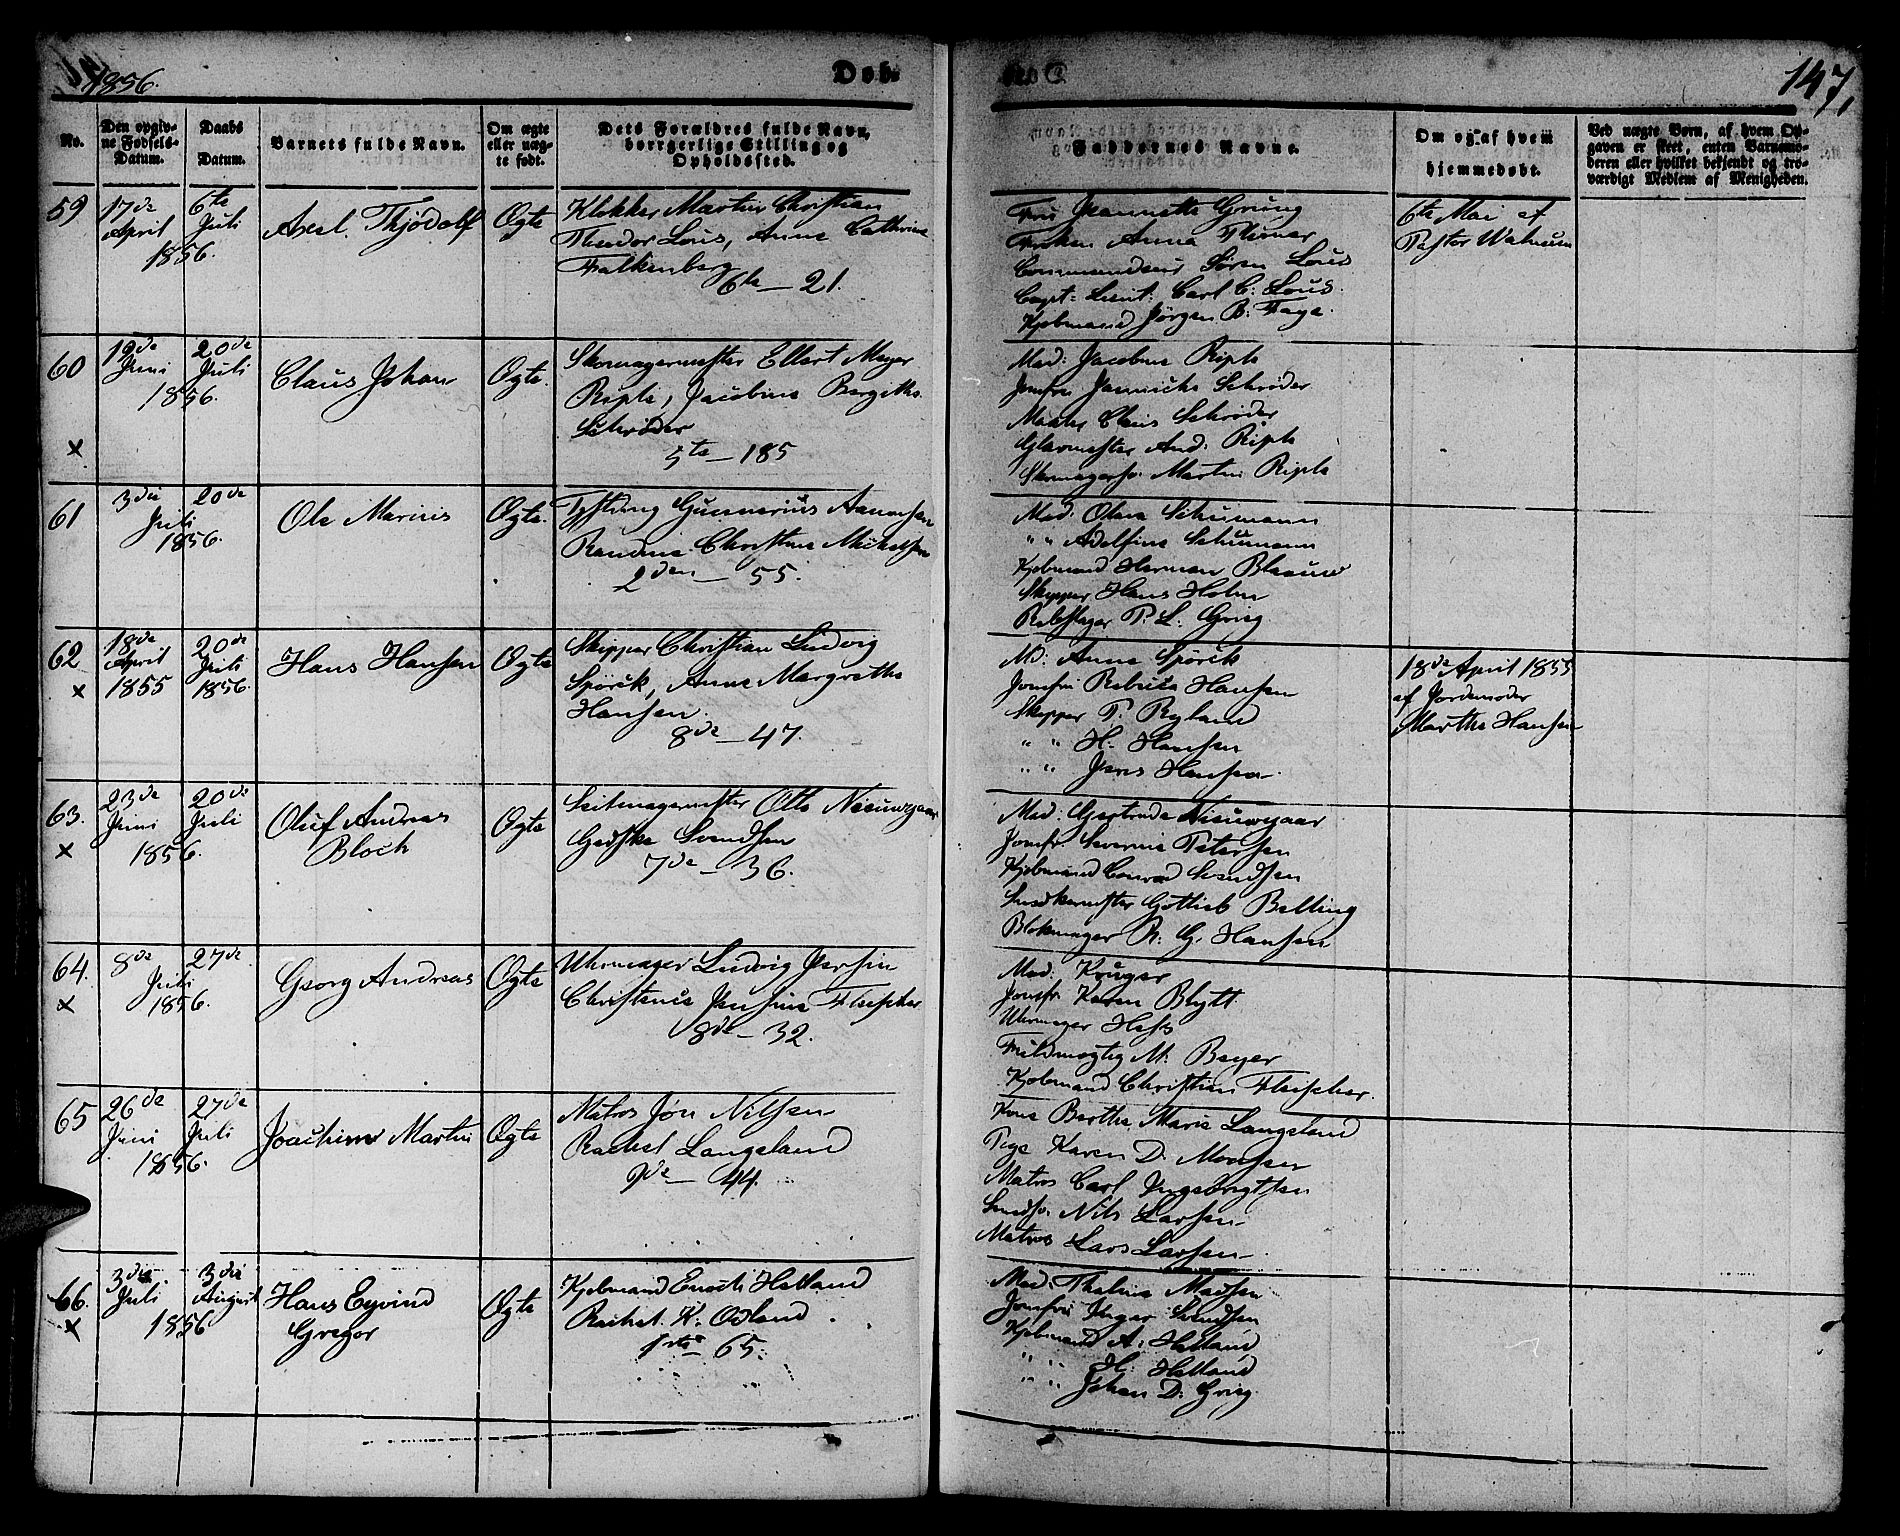 1856.
Døb-
147,
No.
Den opgiv-
ne Fødsels-
Datum.
Daabs
Datum.
Barnets fulde Navn.
Om ægte
eller uæg-
te født.
Dets Forældres fulde Navn,
borgerlige Stilling og
Opholdssted.
Faddernes Navne.
Om og af hvem
hjemmedøbt.
Ved uægte Børn, af hvem Op-
gaven er skeet, enten Barnemo-
deren eller hvilket bekjendt og tro-
værdigt Medlem af Menigheden.
59
17de
April
6te
Juli
1856.
Axel Thjodolf
Ægte
Klokker Martin Christian
Theodor Lous, Anna Cathrine
Falkenberg
6te — 21.
Fru Jeannette Grüng
Frøken Anna
Commandeur Søren Lous
Capt: Lieut: Carl C: Lous.
Kjøbmand Jørgen B: Faye.
6te Mai af
Pastor Walnum
60
x
Juni
20de
Juli
1856.
Claus Johan
Ægte.
Skomagermester Ellert Meyer
Riple, Jacobine Bergithe
Schrøder
5te — 185
Mad: Jacobine Riple
Jomfru Jannicke Schrøder
Claus Schrøder
And: Riple
Martin Riple
61
3die
Juli
20de
1856.
Ole Marius
Ægte.
Gunnerius Aamosen
Randine Christine Mikelsen
2den — 55.
Mad: Olava Schumann
" " Adelfine Schumann
Kjøbmand Herman Blaauw
Skipper Hans Holm
Rebslager P. L. Grieg
62
x
18de
April
1855
20de
Juli
1856.
Hans Hansen
Ægte
Skipper Christian Ludvig
Spörck, Anne Margrethe
Hansen.
8de — 47.
Md: Anna Spörck
Jomfru Rebecca Hansen
Skipper P. Ryland
" " H. Hansen
" " Jens Hansen.
18de April 1855
af Jordemoder
Marthe Hansen
63.
x
23de
Juni
20de
Juli
1856.
Oluf Andreas
Bloch
Ægte
Seilmagermester Otto Nieuwejaar
Gedske Svendsen
7de — 36.
Mad: Gertrude Nieuwejaar
Jomfr: Severine Petersen
Kjøbmand Conrad Svendsen
Snedkermester Gottlieb Belling
Blokmager R. G. Hansen
64.
x
8de
Juli
27de
1856.
Georg Andreas
Ægte
Uhrmager Ludvig Jersin
Christence Jensine Fleischer
8de — 32.
Mad: Krüger
Jomfr: Karen Blytt
Uhrmager Hess
Fuldmægtig M: Beyer
Kjøbmand Christian Fleischer.
65
26de
Juni
27de
Juli
1856.
Joachim Martin
Ægte
Matros Jøn Nilsen
Rachel Langeland
9de — 44.
Kone Berthe Marie Langeland
Pige Karen D. Monsen
Matros Carl Ingebrigtsen
Nils Larsen
Matros Lars Larsen
66.
x
3die
Juli
3die
August
1856
Hans Eyvind
Gregor
Ægte
Kjøbmand Enoch Hetland
Rachel K. Ødland.
1ste 65.
Mad. Thaline Madsen
Jomfru Inger Svendsen
Kjøbmand A. Hetland
" " H. Hetland
" " Johan D. Grieg.